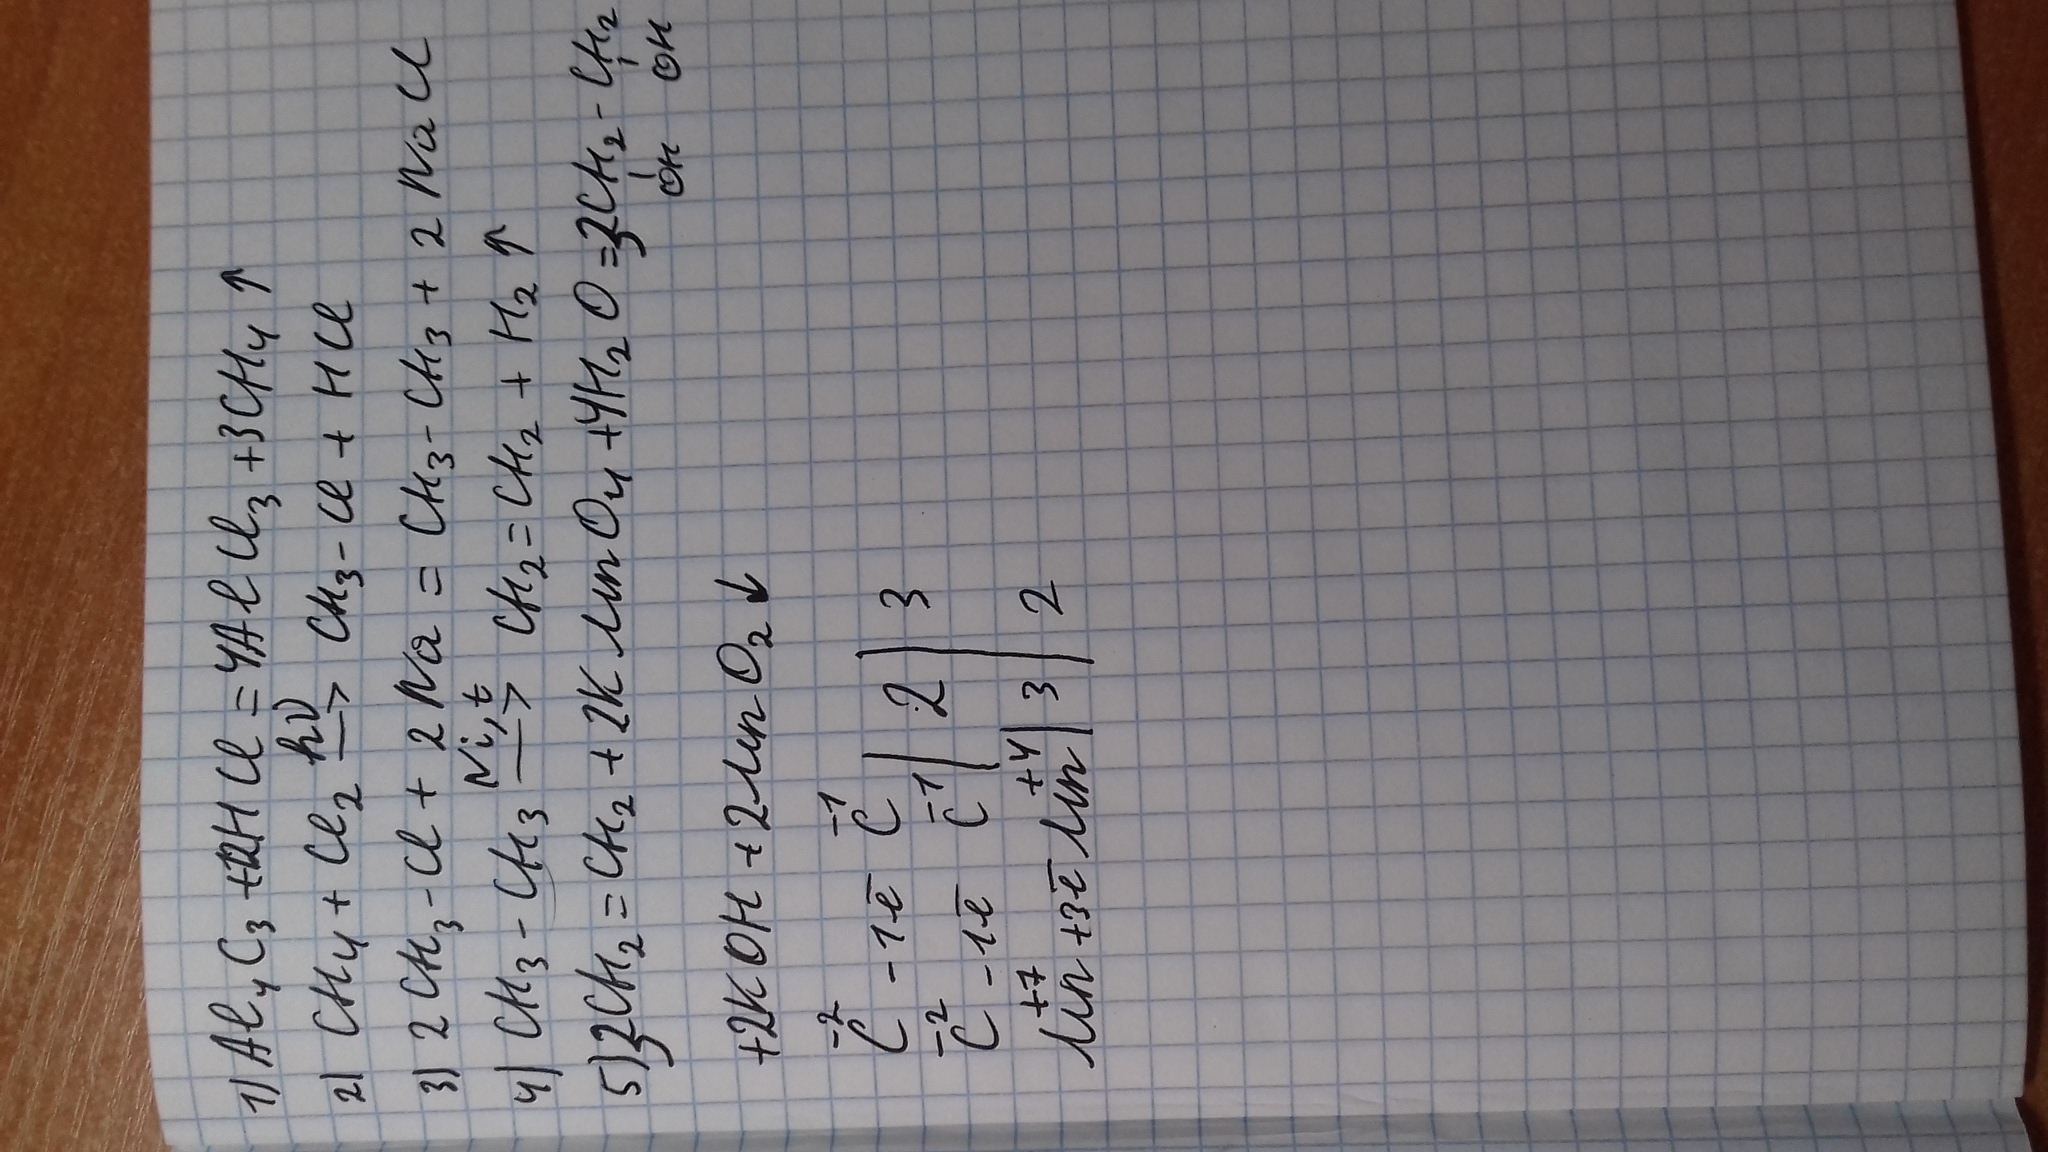 1) Al₄C₃ + 12HCl = 4AlCl₃ + 3CH₄ ↑
hν
2) CH₄ + Cl₂ → CH₃-Cl + HCl
3) 2CH₃-Cl + 2Na = CH₃-CH₃ + 2NaCl
Ni, t
4) CH₃-CH₃ → CH₂=CH₂ + H₂ ↑
5) 3CH₂=CH₂ + 2KMnO₄ + 4H₂O = 3CH₂-CH₂
OH OH
+ 2KOH + 2MnO₂ ↓
-2 -1
C -1ē C | 2 | 3
-2 -1
C -1ē C
+7 +4
Mn +3ē Mn | 3 | 2